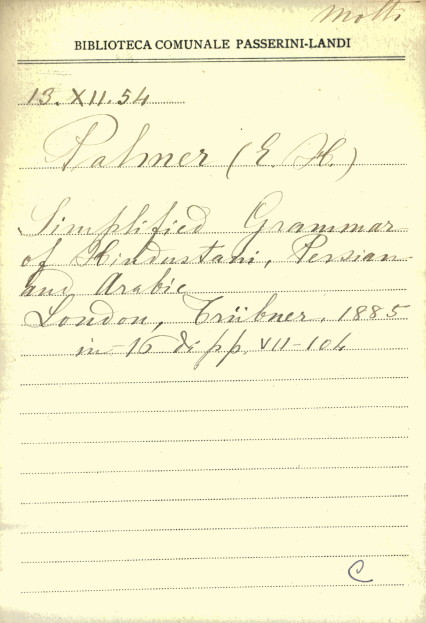 Motti
BIBLIOTECA COMUNALE PASSERINI-LANDI
13.XII.54
Palmer (E. H.)
Simplified Grammar
of Hindustani, Persian
and Arabic
London, Trübner, 1885
in-16 di pp. VII-104
C